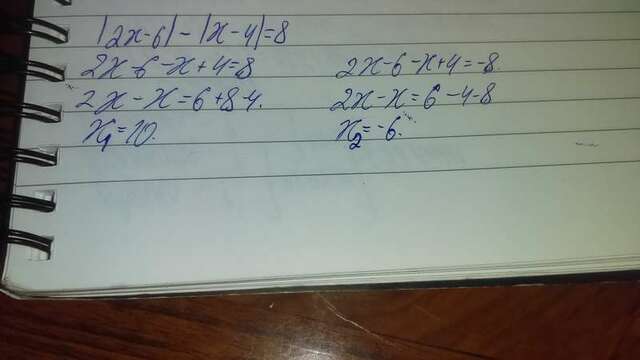 |2x-6|-|x-4|=8
2x-6-x+4=8
2x-x=6+8-4.
x₁=10.
2x-6-x+4=-8
2x-x=6-4-8
x₂=-6.